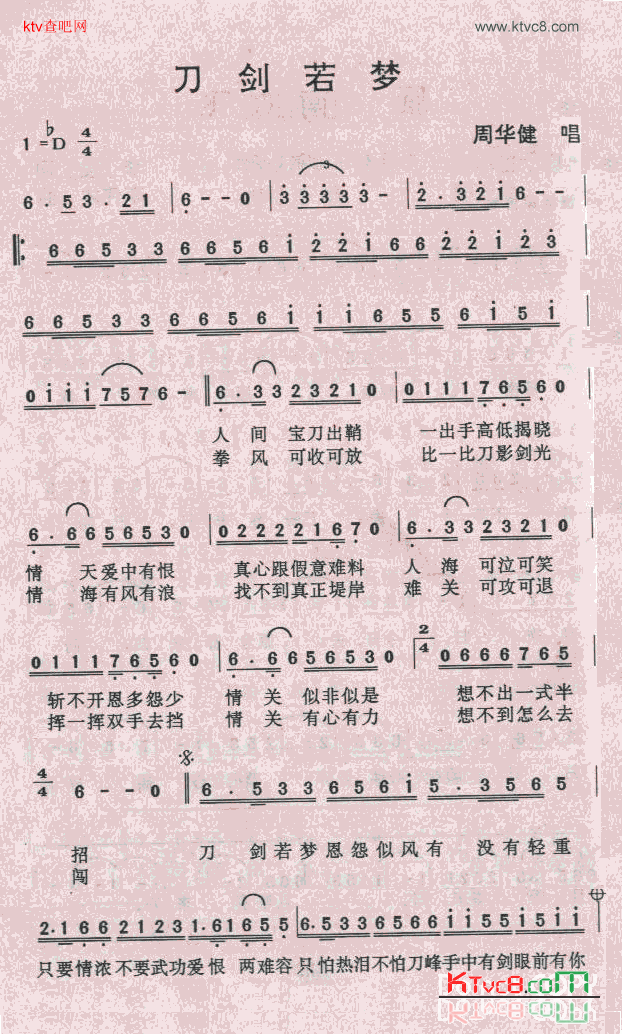 ktv查吧网
www.ktvc8.com
刀剑若梦
1=♭D 4/4
周华健 唱
6 . 5 3 . 2 1 | 6 - - 0 | 3 3 3 3 3 3 - | 2 . 3 2 1 6 - - |
6 6 5 3 3 6 6 5 6 1 | 2 2 1 6 6 2 2 1 2 3 |
6 6 5 3 3 6 6 5 6 1 | 1 1 6 5 5 6 1 5 1 |
0 1 1 1 7 5 7 6 - || 6 . 3 3 2 3 2 1 0 | 0 1 1 1 7 6 5 6 0 |
人间 宝刀出鞘 一出手高低揭晓
拳风 可收可放 比一比刀影剑光
6 . 6 6 5 6 5 3 0 | 0 2 2 2 2 1 6 7 0 | 6 . 3 3 2 3 2 1 0 |
情 天爱中有恨 真心跟假意难料 人海 可泣可笑
情 海有风有浪 找不到真正堤岸 难关 可攻可退
0 1 1 1 7 6 5 6 0 | 6 . 6 6 5 6 5 3 0 | 2/4 0 6 6 6 7 6 5 |
斩不开恩多怨少 情关 似非似是 想不出一式半
挥一挥双手去挡 情关 有心有力 想不到怎么去
4/4 6 - - 0 || 6 . 5 3 3 5 6 5 6 1 | 5 . 3 5 6 5 |
招 刀 剑若梦恩怨似风有 没有轻重
闯
2 . 1 6 6 2 1 2 3 1 . 6 1 6 5 5 | 6 . 5 3 3 6 5 6 6 1 1 5 5 1 5 1 1
只要情浓不要武功爱恨 两难容只怕热泪不怕刀峰手中有剑眼前有你
KTvc8.com